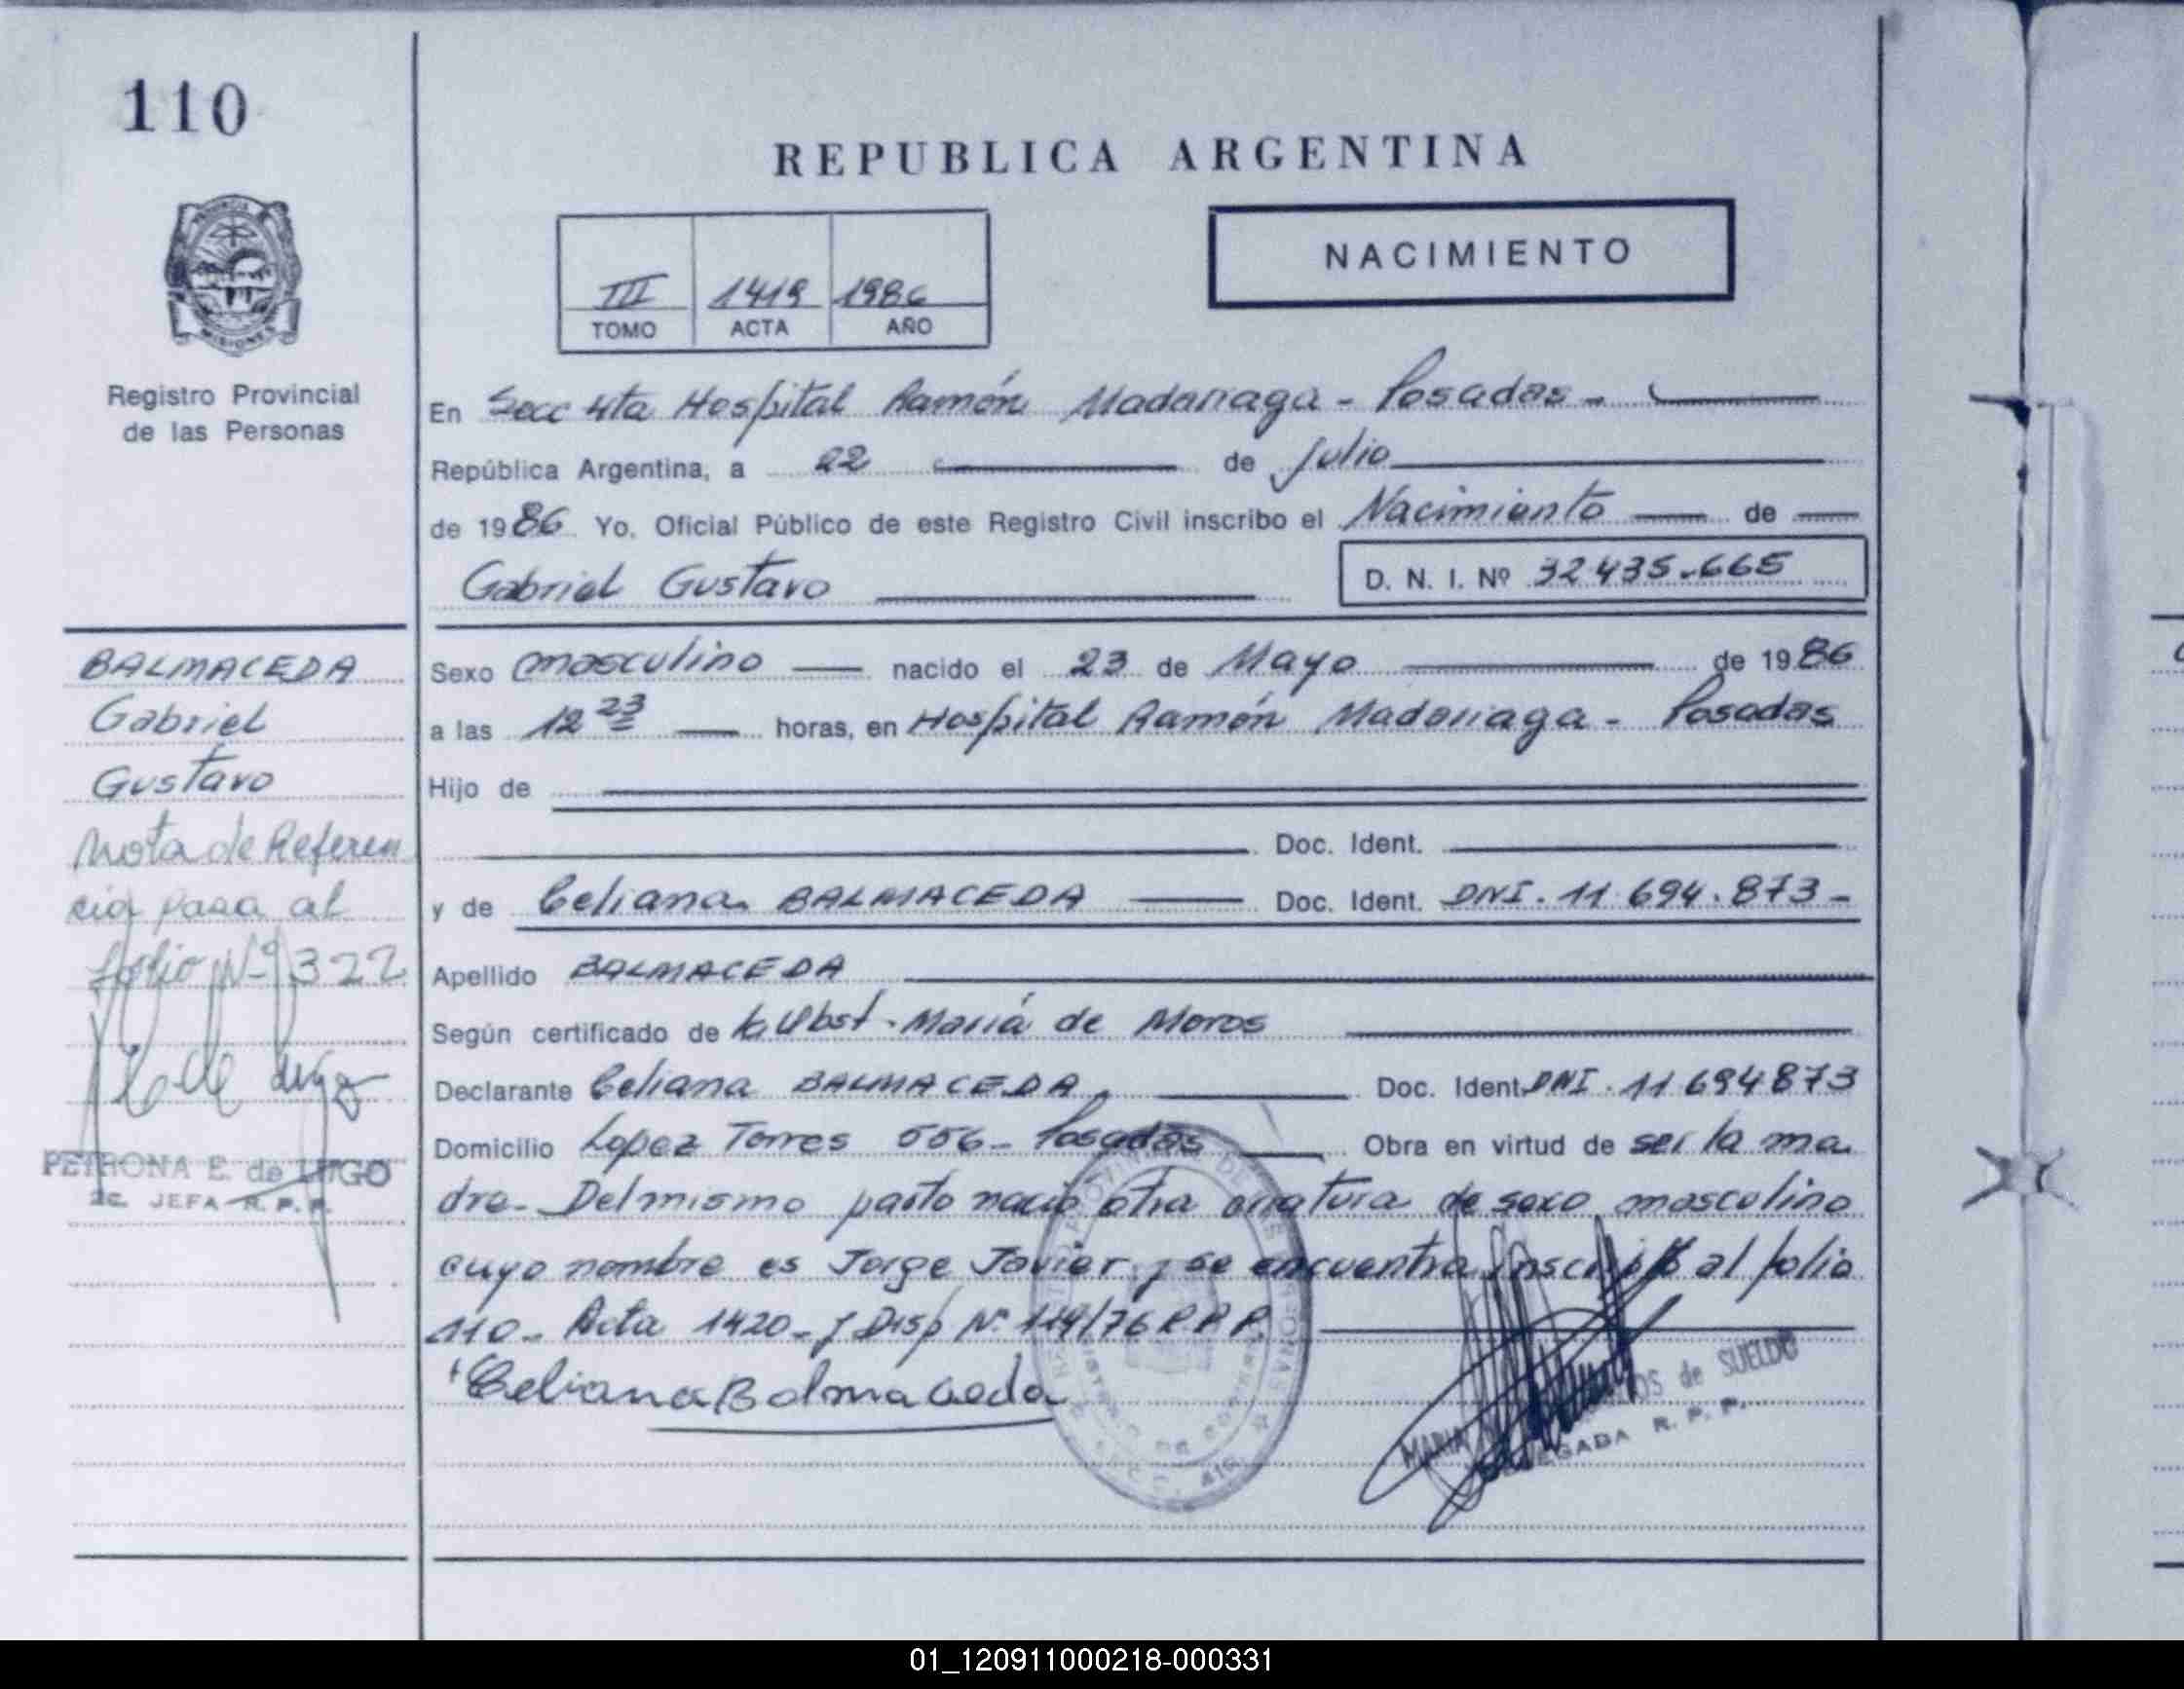 110
REPUBLICA ARGENTINA
PROVINCIA
MISIONES
Registro Provincial
de las Personas
III 1419 1986
TOMO ACTA AÑO
NACIMIENTO
En Secc 4ta Hospital Ramón Madariaga - Posadas -
República Argentina, a 22 de Julio
de 1986 Yo, Oficial Público de este Registro Civil inscribo el Nacimiento de
Gabriel Gustavo
D. N. I. Nº 32.435.665
BALMACEDA
Gabriel
Gustavo
Nota de Referen
cia pasa al
folio Nº 322
PETRONA E. de LUGO
JEFA R.P.P.
Sexo masculino nacido el 23 de Mayo de 1986
a las 12 23 horas, en Hospital Ramón Madariaga - Posadas
Hijo de
Doc. Ident.
y de Celiana BALMACEDA Doc. Ident. DNI. 11.694.873-
Apellido BALMACEDA
Según certificado de la Obst. María de Moros
Declarante Celiana BALMACEDA Doc. Ident. DNI. 11694873
Domicilio Lopez Torres 556- Posadas Obra en virtud de ser la ma
dre- Del mismo parto nació otra criatura de sexo masculino
cuyo nombre es Jorge Javier y se encuentra inscripto al folio
110- Acta 1420- Disp Nº 119/76 R.P.P.
Celiana Balmaceda
MARIA de SUELDO
DELEGADA R. P. P.
01_120911000218-000331